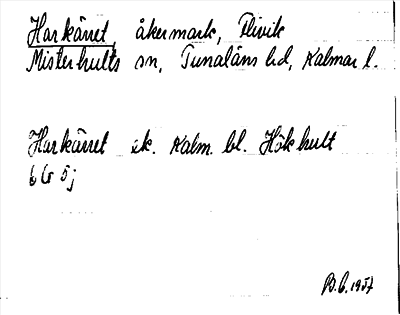 Harkärret, åkermark, Flivik
Misterhults sn, Tunaläns hd, Kalmar l.
Harkärret ek. Kalm. bl. Hökhult
6G 5j
B.C. 1957